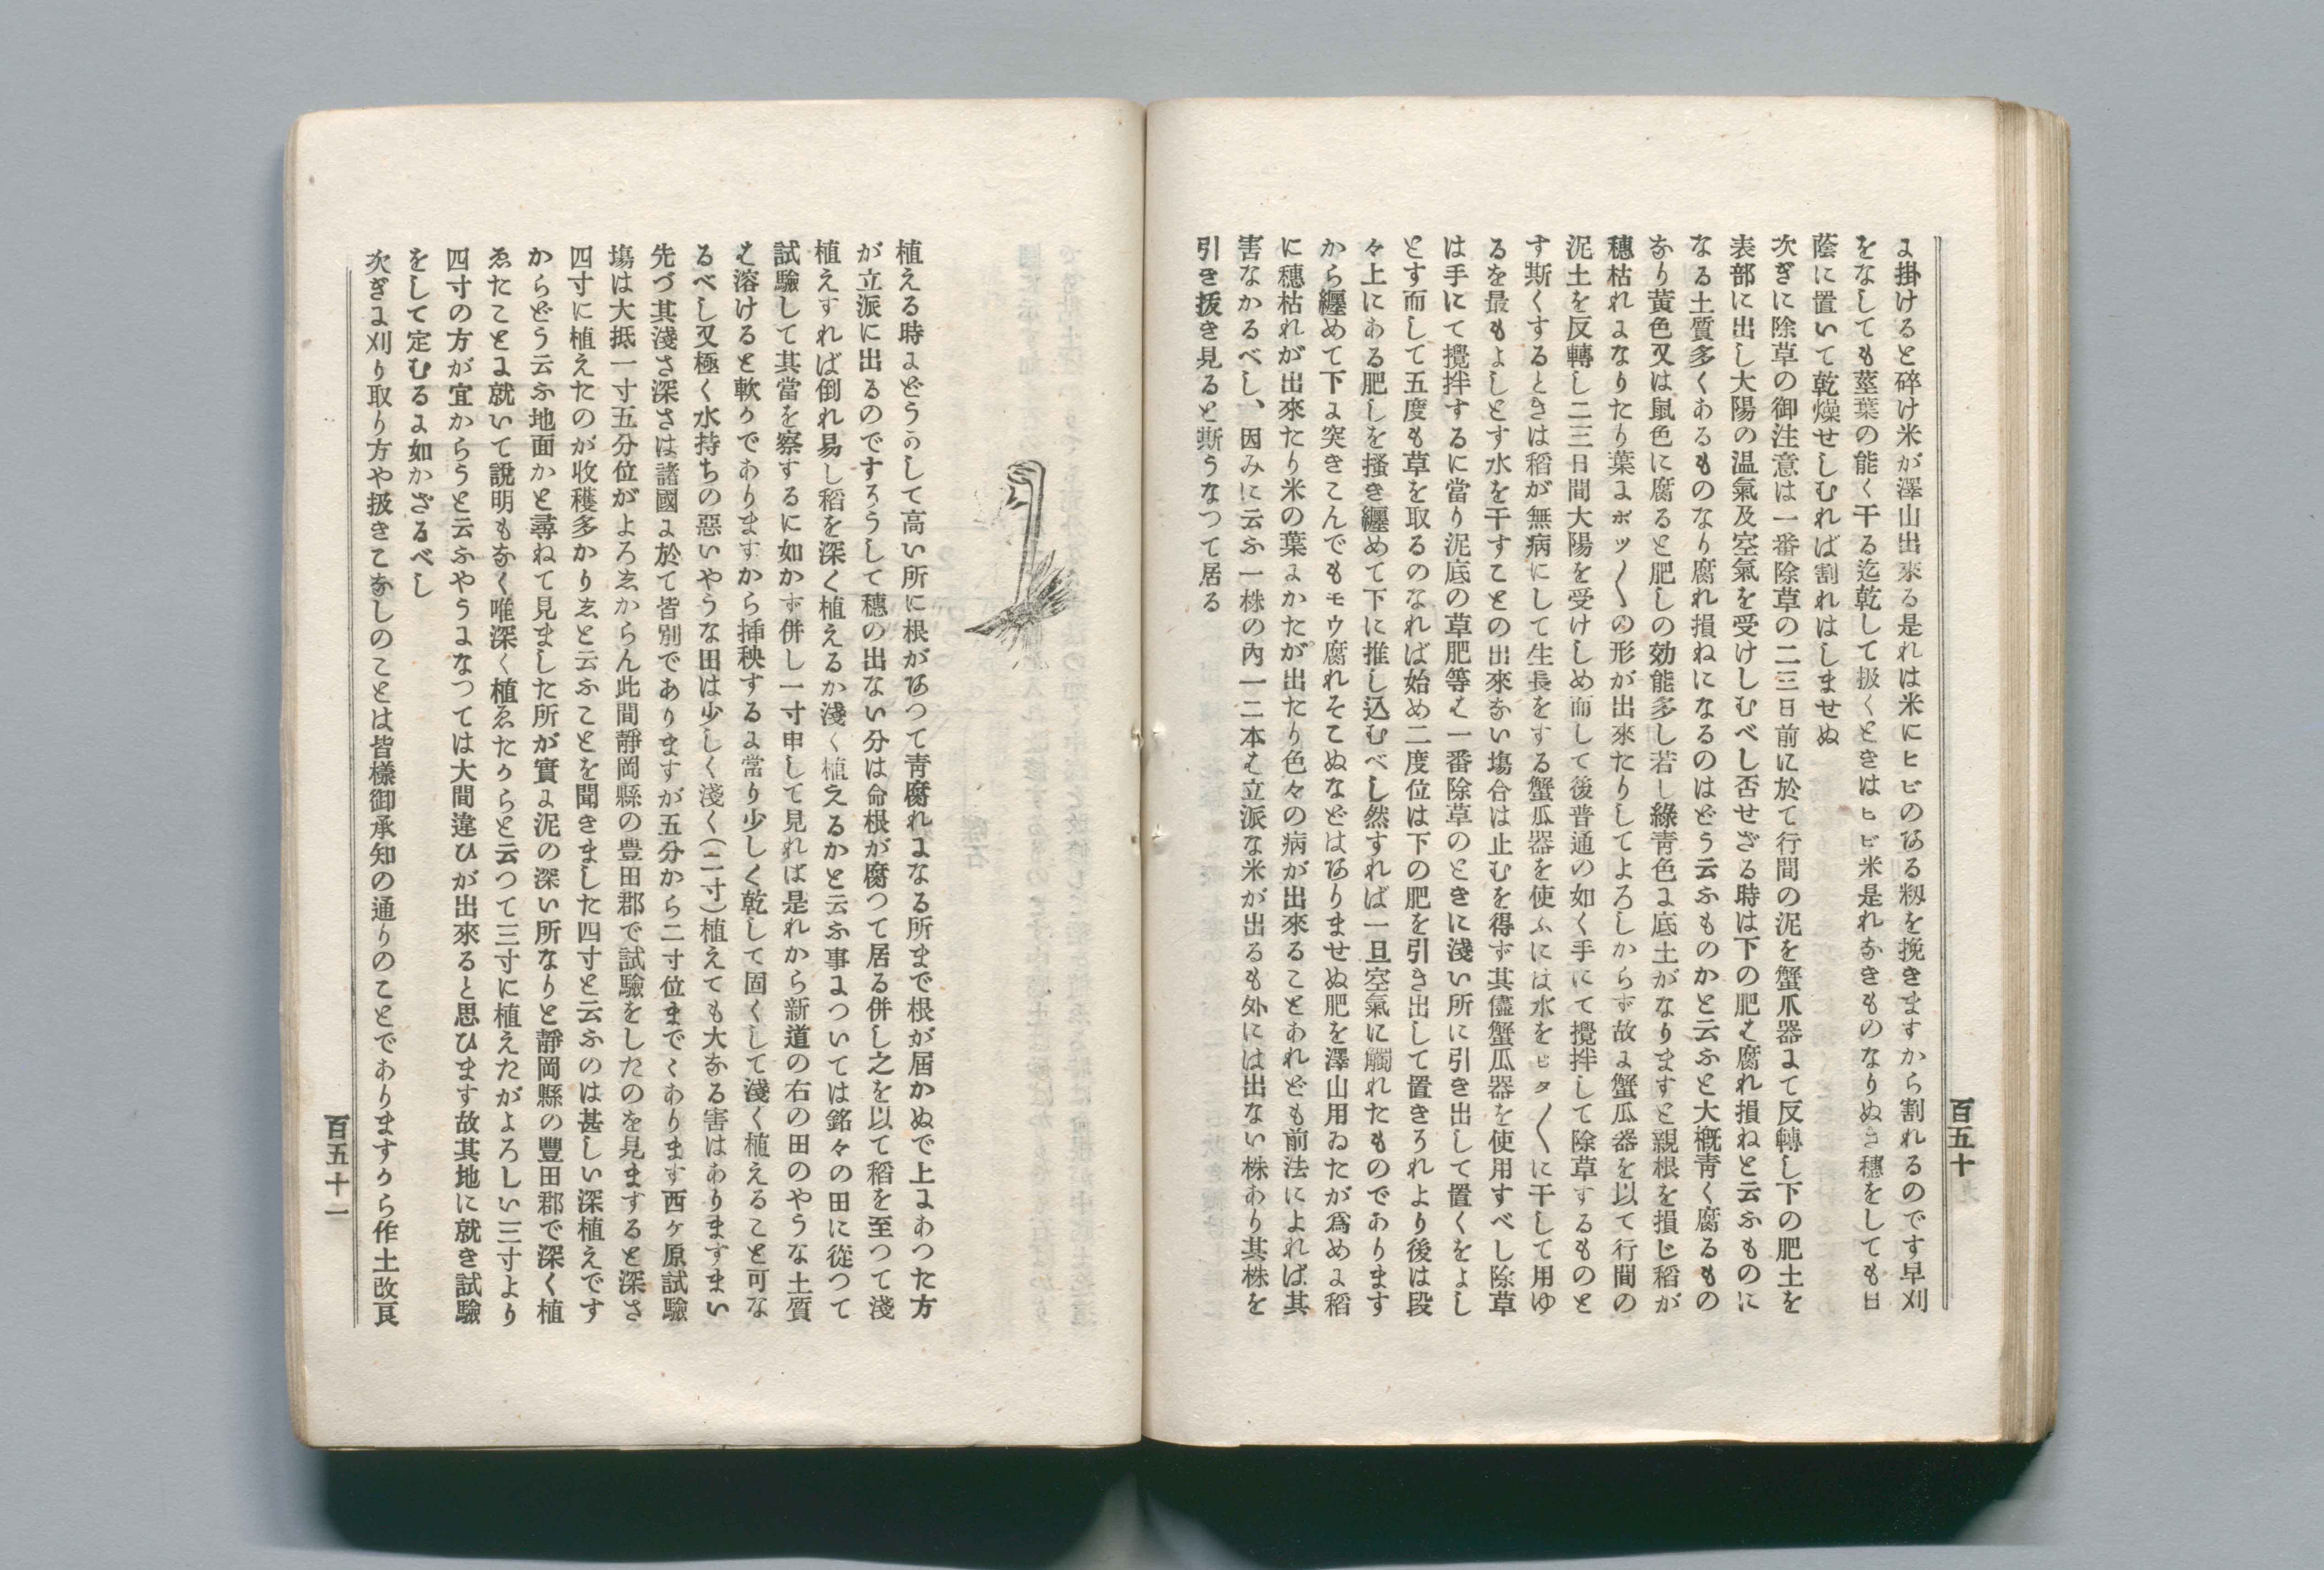 に掛けると碎け米が澤山出來る是れは米にヒビのある籾を挽きますから割れるのです早刈
をなしても莖葉の能く干る迄乾して扱くときはヒビ米是れなきものなりぬき穗をしても日
蔭に置いて乾燥せしむれば割れはしませぬ
次ぎに除草の御注意は一番除草の二三日前に於て行間の泥を蟹爪器にて反轉し下の肥土を
表部に出し大陽の温氣及空氣を受けしむべし否せざる時は下の肥は腐れ損ねと云ふものに
なる土質多くあるものなり腐れ損ねになるのはどう云ふものかと云ふと大概青く腐るもの
なり黄色又は鼠色に腐ると肥しの効能多し若し綠青色に底土がなりますと親根を損じ稻が
穗枯れになりたり葉にポツ〱の形が出來たりしてよろしからず故に蟹瓜器を以て行間の
泥土を反轉し二三日間大陽を受けしめ而して後普通の如く手にて攪拌して除草するものと
す斯くするときは稻が無病にして生長をする蟹瓜器を使ふには水をヒタ〱に干して用ゆ
るを最もよしとす水を干すことの出來ない塲合は止むを得ず其儘蟹瓜器を使用すべし除草
は手にて攪拌するに當り泥底の草肥等は一番除草のときに淺い所に引き出して置くをよし
とす而して五度も草を取るのなれば始め二度位は下の肥を引き出して置きそれより後は段
々上にある肥しを搔き纒めて下に推し込むべし然すれば一旦空氣に觸れたものであります
から纒めて下に突きこんでもモウ腐れそこぬなどはありませぬ肥を澤山用ゐたが爲めに稻
に穗枯れが出來たり米の葉にかたが出たり色々の病が出來ることあれども前法によれば其
害なかるべし、因みに云ふ一株の内一二本は立派な米が出るも外には出ない株あり其株を
引き拔き見ると斯うなつて居る
百五十
植える時にどうかして高い所に根があつて靑腐れになる所まで根が屆かぬで上にあつた方
が立派に出るのですそうして穗の出ない分は命根が腐つて居る併し之を以て稻を至つて淺
植えすれば倒れ易し稻を深く植えるか淺く植えるかと云ふ事については銘々の田に從つて
試驗して其當を察するに如かず併し一寸申して見れば是れから新道の右の田のやうな土質
は溶けると軟かでありますから挿秧するに當り少しく乾して固くして淺く植えること可な
るべし又極く水持ちの惡いやうな田は少しく淺く(二寸)植えても大なる害はありますまい
先づ其淺さ深さは諸國に於て皆別でありますが五分から二寸位まで〱あります西ヶ原試驗
塲は大抵一寸五分位がよろゑからん此間靜岡縣の豊田郡で試驗をしたのを見ますると深さ
四寸に植えたのが收穫多かりゑと云ふことを聞きました四寸と云ふのは甚しい深植えです
からどう云ふ地面かと尋ねて見ました所が實に泥の深い所なりと靜岡縣の豐田郡で深く植
ゑたことに就いて說明もなく唯深く植ゑたからと云つて三寸に植えたがよろしい三寸より
四寸の方が宜からうと云ふやうになつては大間違ひが出來ると思ひます故其地に就き試驗
をして定むるに如かざるべし
次ぎに刈り取り方や扱きこなしのことは皆樣御承知の通りのことでありますから作土改良
百五十一